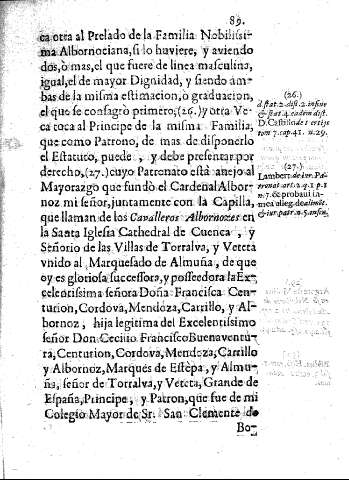 89.
ca otra al Prelado de la Familia Nobilissi-
ma Albornociana, si lo huviere, y aviendo
dos, ò mas, el que fuere de linea masculina,
igual, el de mayor Dignidad, y siendo am-
bas de la misma estimacion, ò graduacion,
el que se consagrò primero; (26.) y otra Ve-
ca toca al Principe de la misma Familia,
que como Patrono, de mas de disponerlo
el Estatuto, puede, y debe presentar por
derecho, (27.) cuyo Patronato està anejo al
Mayorazgo que fundò el Cardenal Albor-
noz mi señor, juntamente con la Capilla,
que llaman de los Cavalleros Albornozes en
la Santa Iglesia Cathedral de Cuenca, y
Señorio de las Villas de Torralva, y Veteta
vnido al Marquesado de Almuña, de que
oy es gloriosa successora, y posseedora la Ex-
celentissima señora Doña Francisca Cen-
turion, Cordova, Mendoza, Carrillo, y Al-
bornoz, hija legitima del Excelentissimo
señor Don Cecilio Francisco Buenaventu-
ra, Centurion, Cordova, Mendoza, Carrillo
y Albornoz, Marquès de Estèpa, y Almu-
ña, señor de Torralva, y Veteta, Grande de
España, Principe, y Patron, que fue de mi
Colegio Mayor de Sr. San Clemente de
Bo-
(26.)
d. stat. 2. dist. 2. in fine
& stat. 4. eadem dist.
D. Castillo de tertijs
tom 7. cap. 41. n. 29.
(27.)
Lambert. de iur. Pa-
tronat. art. 2. q. 1. p. 1
n. 7. & probaui in-
& iur. patr. n. 5. in fin.